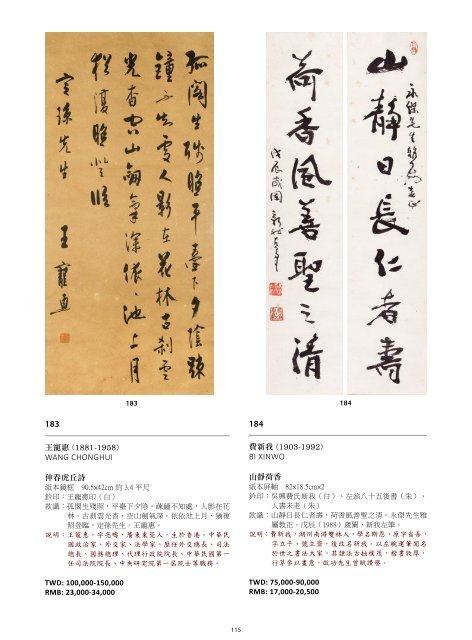 孤閣生殘照平臺下夕陰疎
鐘不知處人影在花林古剎雲
光杳空山劍氣深依依池上月
猶復照登臨
定孫先生
王寵惠
永傑先生雅屬教正
山靜日長仁者壽
荷香風善聖之清
戊辰歲闌 新我左筆
183
184
183
王寵惠 (1881-1958)
WANG CHONGHUI
仲春虎丘詩
紙本鏡框 90.5x42cm 約 3.4 平尺
鈐印：王寵惠印（白）
款識：孤閣生殘照，平臺下夕陰。疎鐘不知處，人影在花
林。古剎雲光杳，空山劍氣深。依依池上月，猶複
照登臨。定孫先生。王寵惠。
說明：王寵惠，字亮疇，廣東東莞人，生於香港。中華民
國政治家、外交家、法學家，歷任外交總長、司法
總長、國務總理、代理行政院院長、中華民國第一
任司法院院長、中央研究院第一屆院士等職務。
TWD: 100,000-150,000
RMB: 23,000-34,000
184
費新我 (1903-1992)
BI XINWO
山靜荷香
紙本屏軸 82x18.5cmx2
鈐印：吳興費氏新我（白）、左翁八十五後書（朱）、
人書未老（朱）
款識：山靜日長仁者壽，荷香風善聖之清。永傑先生雅
屬教正。戊辰（1988）歲闌，新我左筆。
說明：費新我，湖州南潯雙林人，學名斯恩，原字省吾，
字立千，號立齋，後改名新我。以左腕運筆聞名
於世之書法大家。其隸法古拙樸茂，楷書敦厚，
行草參以畫意，啟功先生曾賦讚譽。
TWD: 75,000-90,000
RMB: 17,000-20,500
115